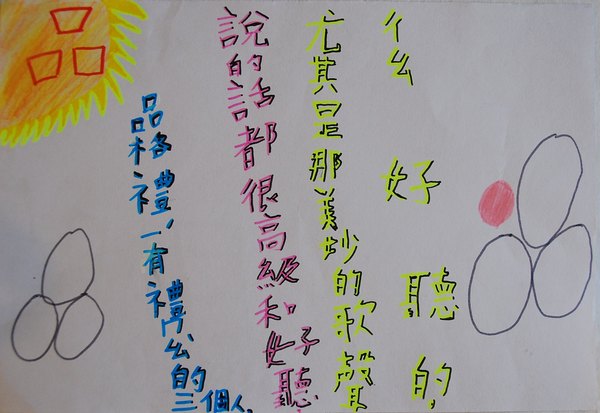 么好聽的,
尤其是那美妙的歌聲
說的話都很高級和好聽
品格禮,一有禮公的
三個人.
品